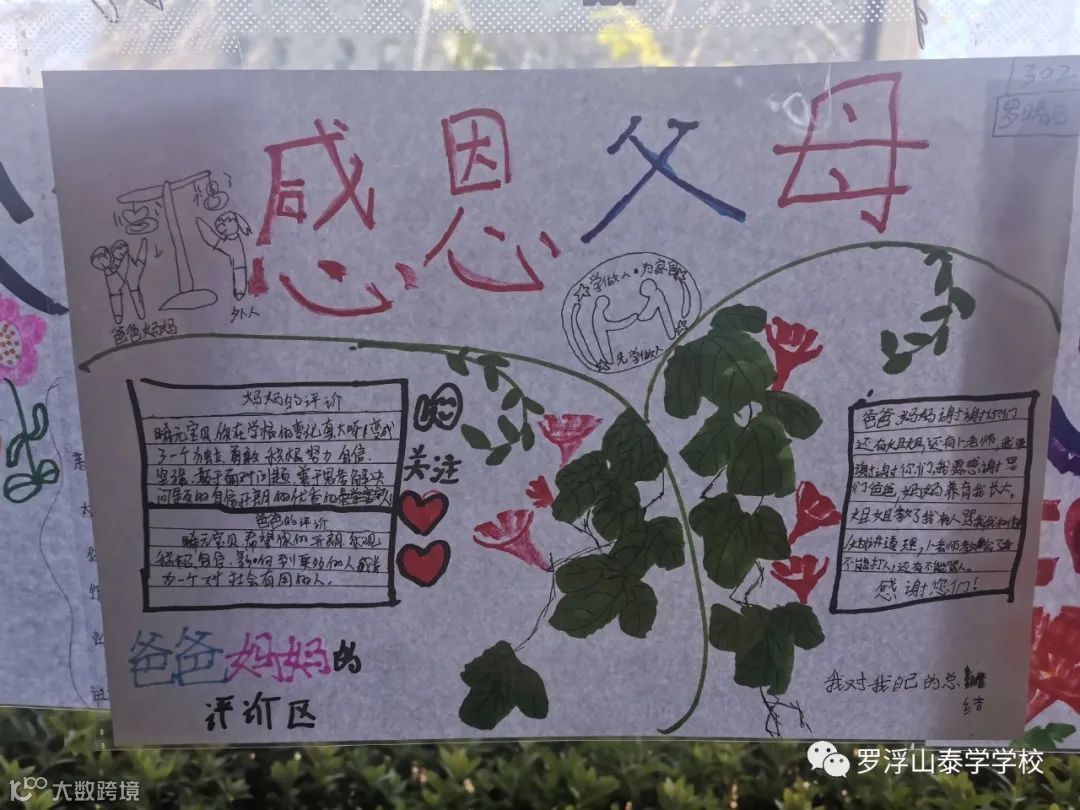 302
罗晞元
感恩父母
爸爸妈妈
外人
学做人·为家国
先学做人
妈妈的评价
晞元宝贝,你在学校的变化真大呀!变成
了一个独立、勇敢、积极、努力、自信、
坚强、敢于面对问题、善于思考解决
问题的自信开朗的优秀的泰学学子
爸爸的评价
晞元宝贝,希望你的开朗、乐观、
积极、自信,影响到更多的人,成
为一个对社会有用的人。
关注
爸爸妈妈谢谢你们
还有姐姐,还有卜老师,我
谢谢你们,我要感谢
们爸爸,妈妈养育我长大,
姐姐教了我有人骂我
讲道理,卜老师教会了
不能打人,还有不能骂人。
感谢您们!
爸爸妈妈的
评价区
我对我自己的总
结
罗浮山泰学学校
大数跨境